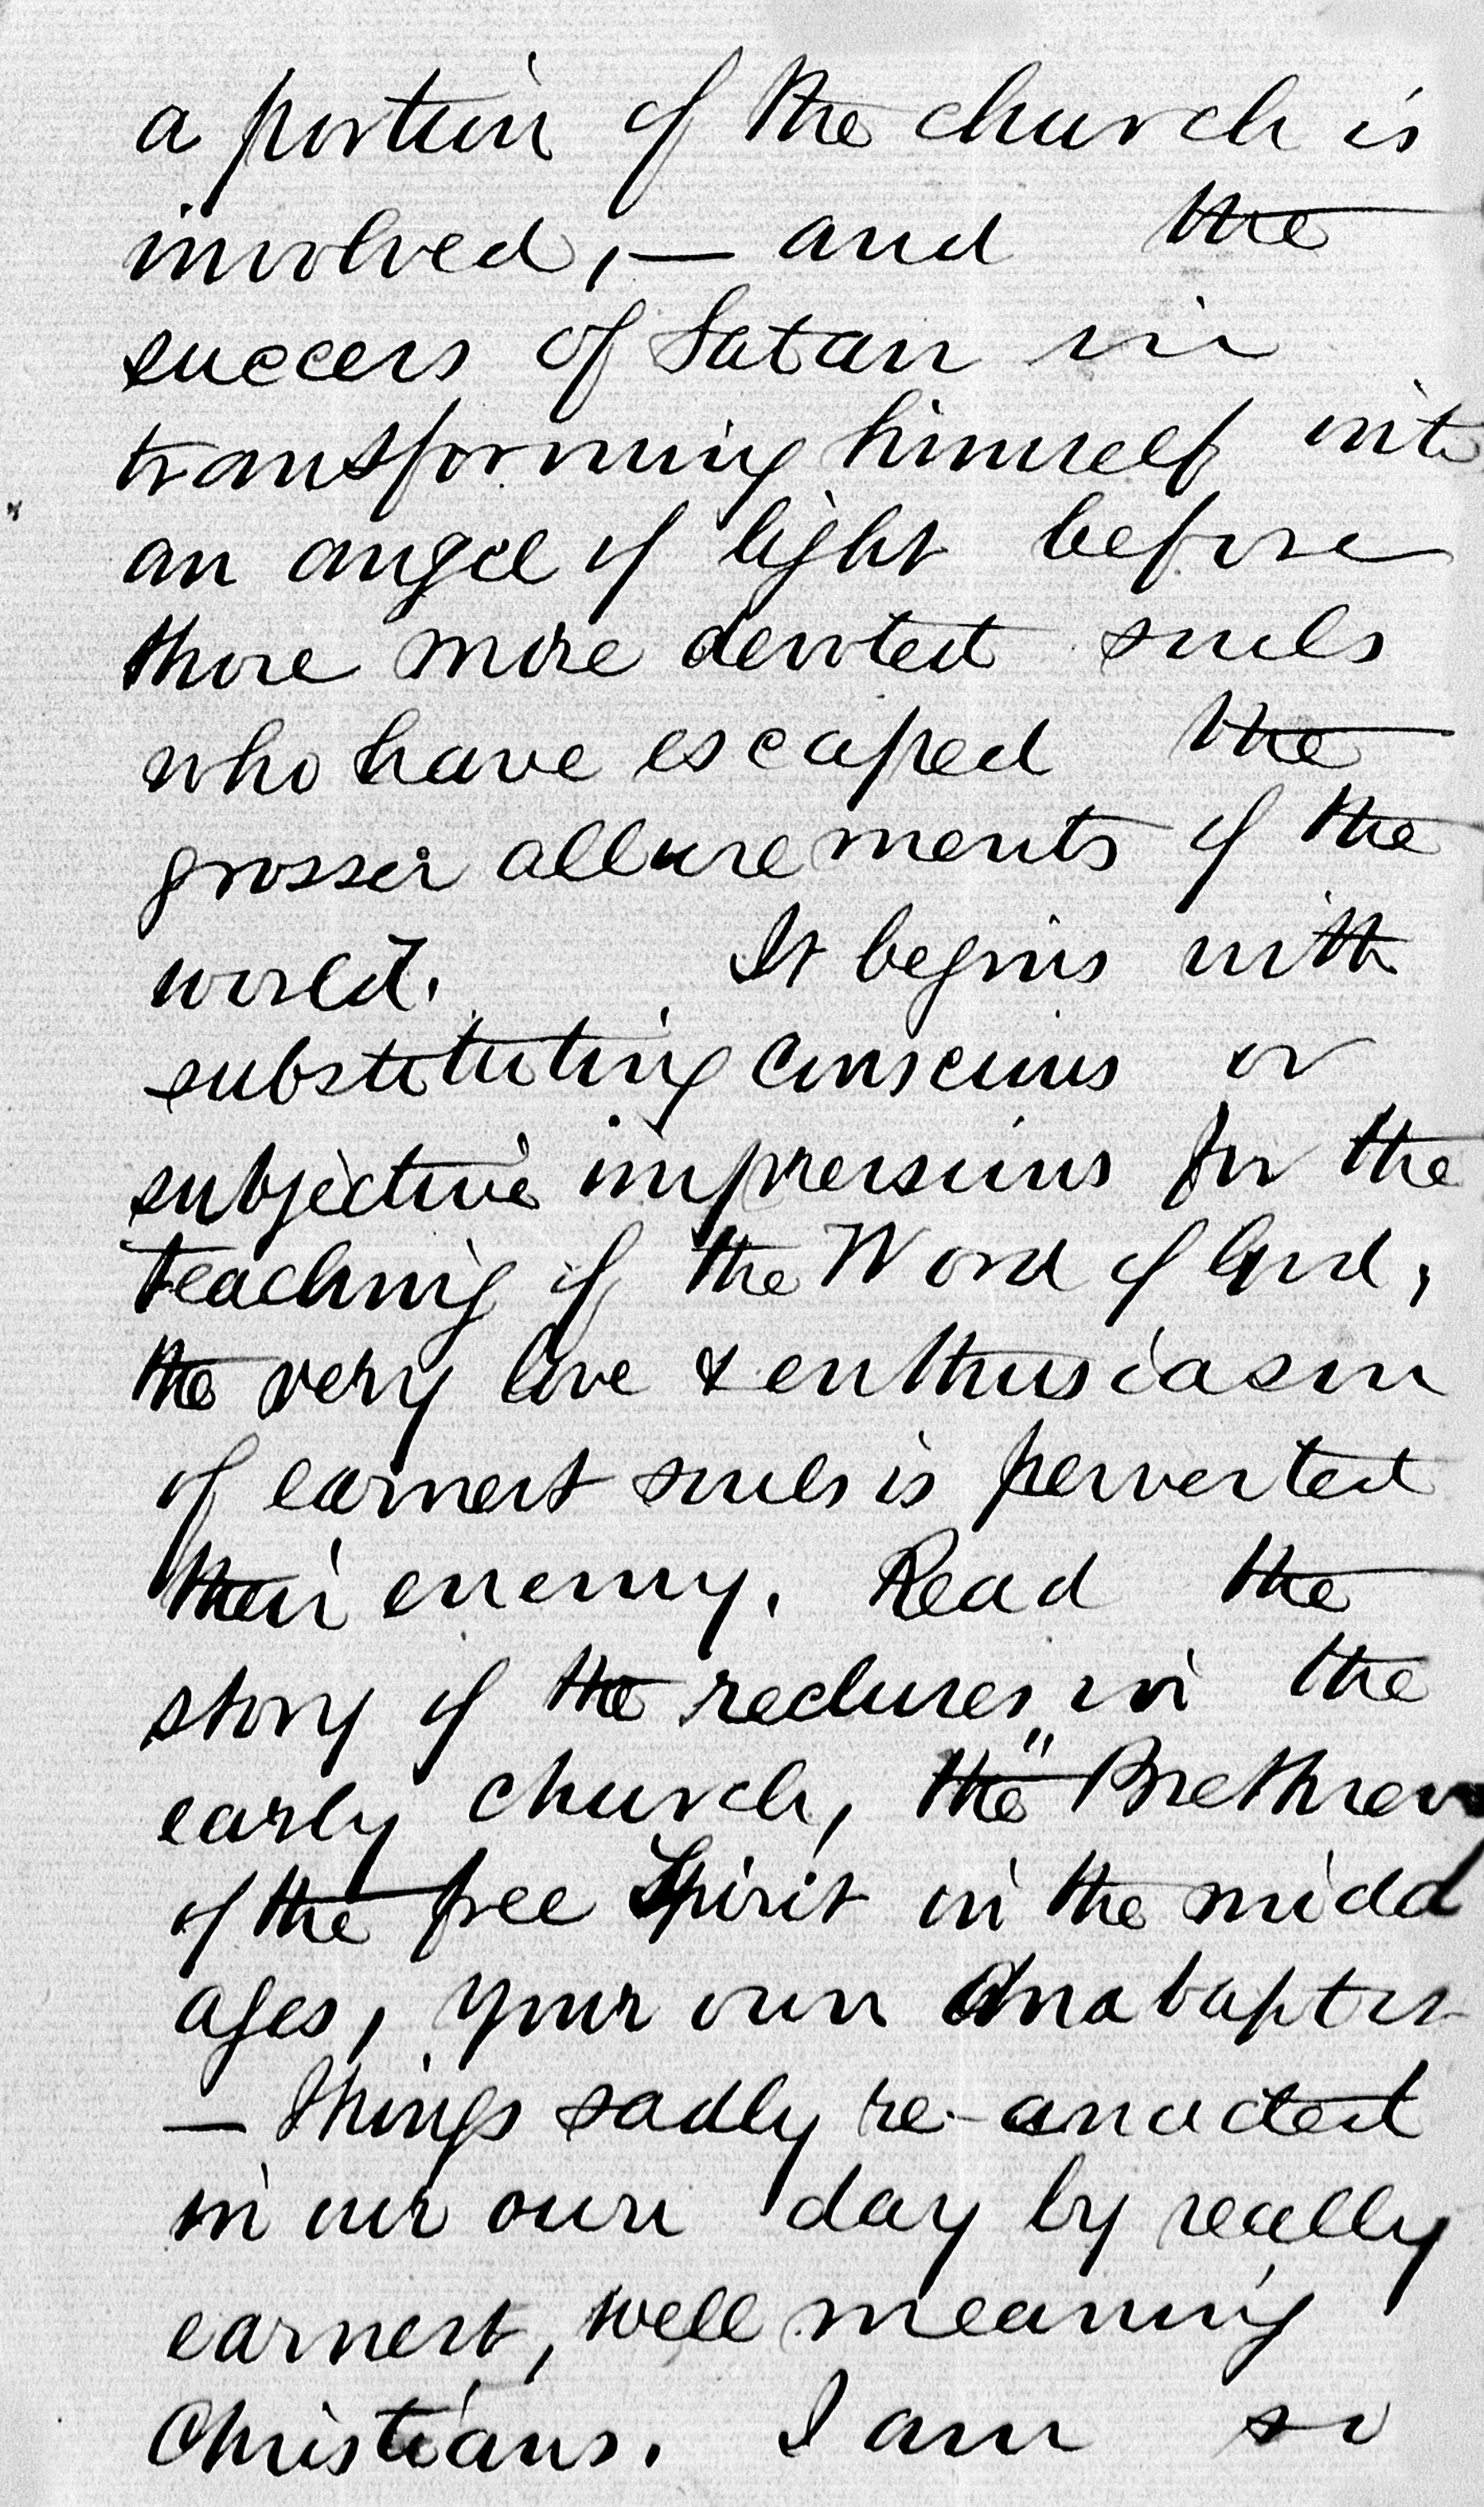 a portion of the church is
involved, — and the
success of Satan in
transforming himself into
an angel of light before
those more devoted souls
who have escaped the
grosser allurements of the
world. It begins with
substituting conscious or
subjective impressions for the
teaching of the Word of God,
the very love & enthusiasm
of earnest souls is perverted
their enemy. Read the
story of the recluses in the
early church, the "Brethren
of the free Spirit in the midd
ages, your own Anabaptis
— things sadly re-anacted
in our own day by really
earnest, well meaning
Christians. I am so